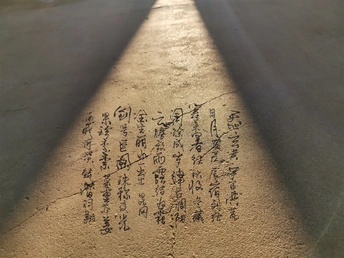 天地玄黃宇宙洪荒
日月盈昃辰宿列張
寒來暑往秋收冬藏
閏餘成歲律呂調陽
雲騰致雨露結為霜
金生麗水玉出崑岡
劍號巨闕珠稱夜光
果珍李柰菜重芥薑
海鹹河淡鱗潛羽翔